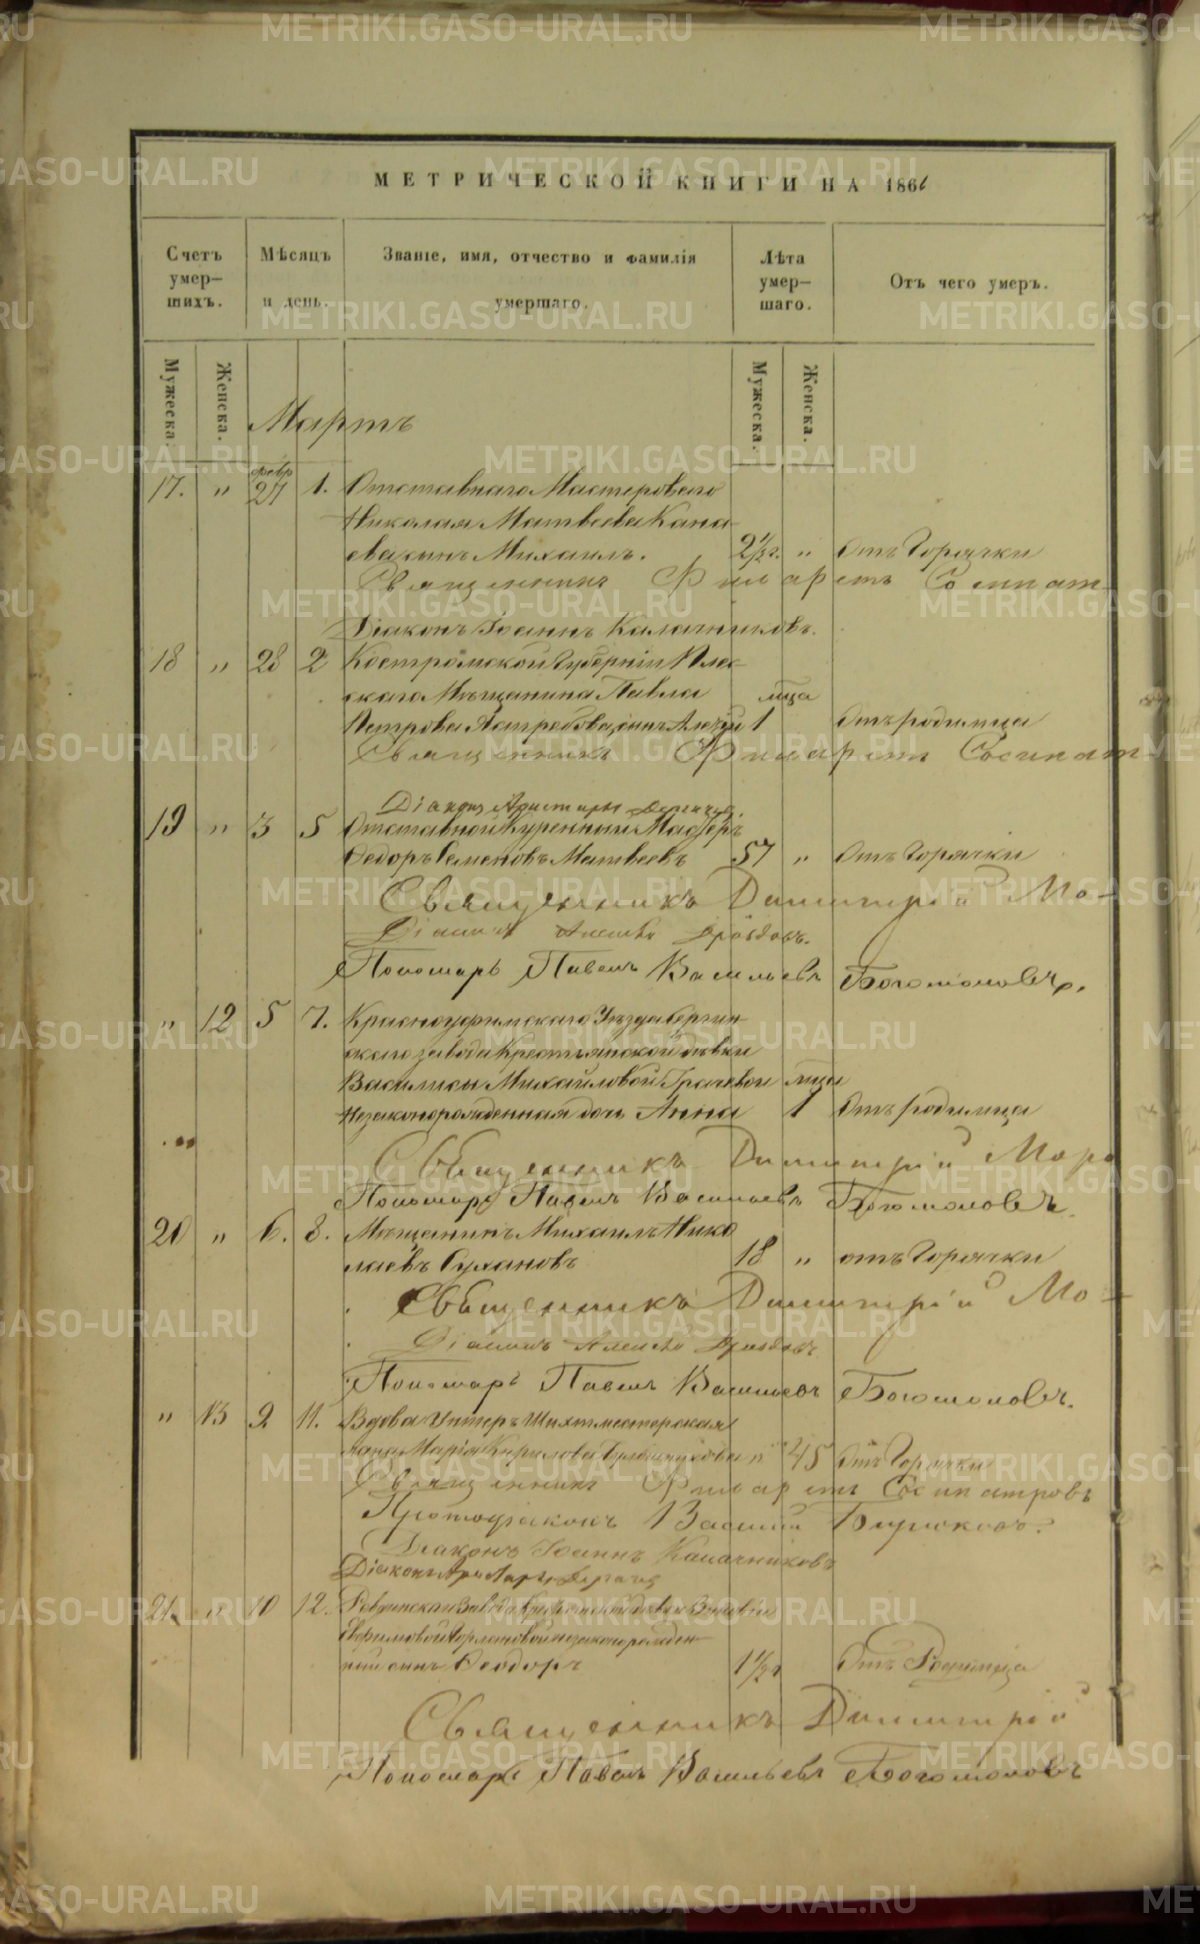 МЕТРИЧЕСКОЙ КНИГИ НА 186
Счетъ умерших. Мѣсяцъ и день. Званіе, имя, отчество и фамилія умершаго. Лѣта умершаго. Отъ чего умеръ.
Мужеска. Женска. Мужеска. Женска.
Мартъ
февр
17. „ 27 1. Отставнаго Мастероваго
Николая Матвеева Кана
сынъ Михаилъ. 2 1/2 г. „ Отъ Горячки
Священникъ Филаретъ Сосипат
Діаконъ Іоаннъ Калачниковъ.
18 „ 28 2 Костромской Губерніи Плес
скаго Мѣщанина Павла мца
Петрова Ястребова, сынъ 1 Отъ родимца
Священникъ Филаретъ Сосипат
Діаконъ
19 „ 3 5 Отставной Куренный Мастеръ
Федоръ Семеновъ Матвеевъ 57 „ Отъ Горячки
Священникъ Димитрій Мо-
Діаконъ Алексѣй Дроздовъ.
Пономарь Павелъ Васильевъ Богомоловъ.
„ 12 5 7. Красноуфимскаго Уѣзда Сергин
скаго завода Крестьянской дѣвки
Василисы Михайловой Грачевой мца
Незаконорожденная дочь Анна 1 Отъ родимца
Священникъ Димитрій Моро
Пономарь Павелъ Васильевъ Богомоловъ.
20 „ 6. 8. Мѣщанинъ Михаилъ Нико
лаевъ Сухановъ 18 „ отъ Горячки
Священникъ Димитрій Мо-
Діаконъ Алексѣй Дроздовъ
Пономарь Павелъ Васильевъ Богомоловъ.
„ 13 9 11. Вдова Унтеръ Шихтмейстерская
Марія Кирилова „ 45 Отъ Горячки
Священникъ Филаретъ Сосипатровъ
Протодіаконъ Василій Бирюковъ.
Діаконъ Іоаннъ Калачниковъ
Діаконъ
21. „ 10 12. Ревдинскаго Завода дѣвки
незаконорожден
ный сынъ Ѳеодоръ 1 1/2 г Отъ Родимца
Священникъ Димитрій
Пономарь Павелъ Васильевъ Богомоловъ
METRIKI.GASO-URAL.RU